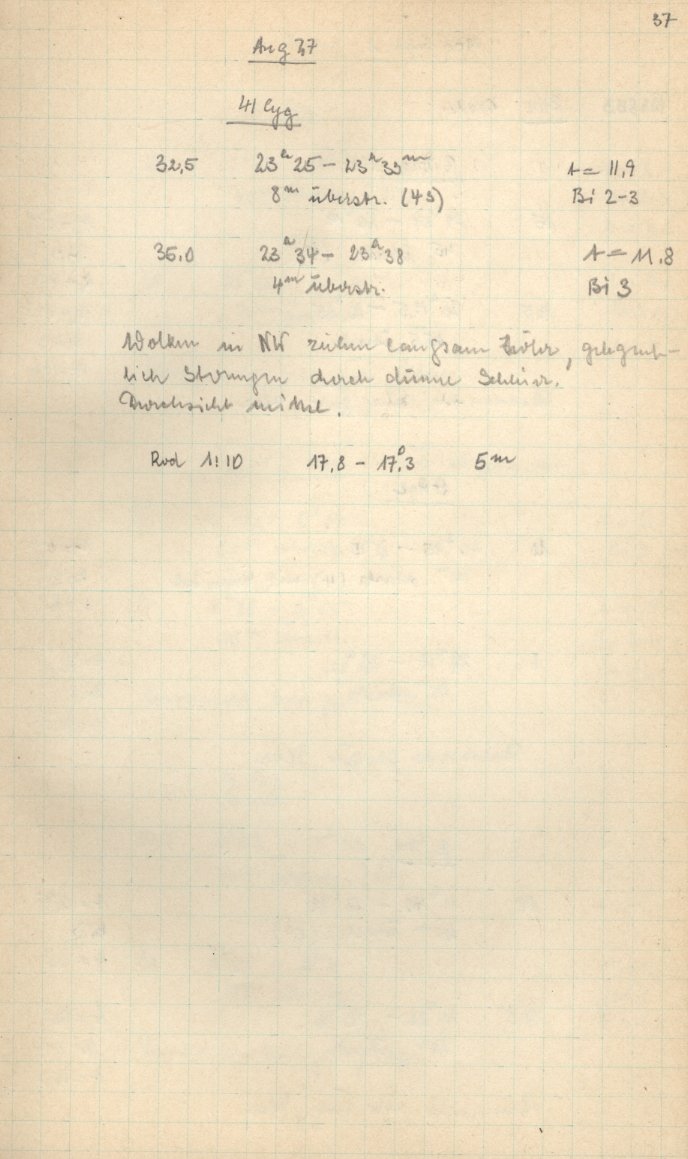 37
Aug 37
41 Cyg
32,5 23ʰ25 – 23ʰ33ᵐ t = 11,9
8ᵐ überstr. (4s) Bi 2-3
35,0 23ʰ34 – 23ʰ38 t = 11,8
4ᵐ überstr. Bi 3
Wolken in NW ziehen langsam höher, gelegent-
lich Störungen durch dünne Schleier.
Durchsicht mittel.
Rod 1:10 17,8 – 17,°3 5ᵐ